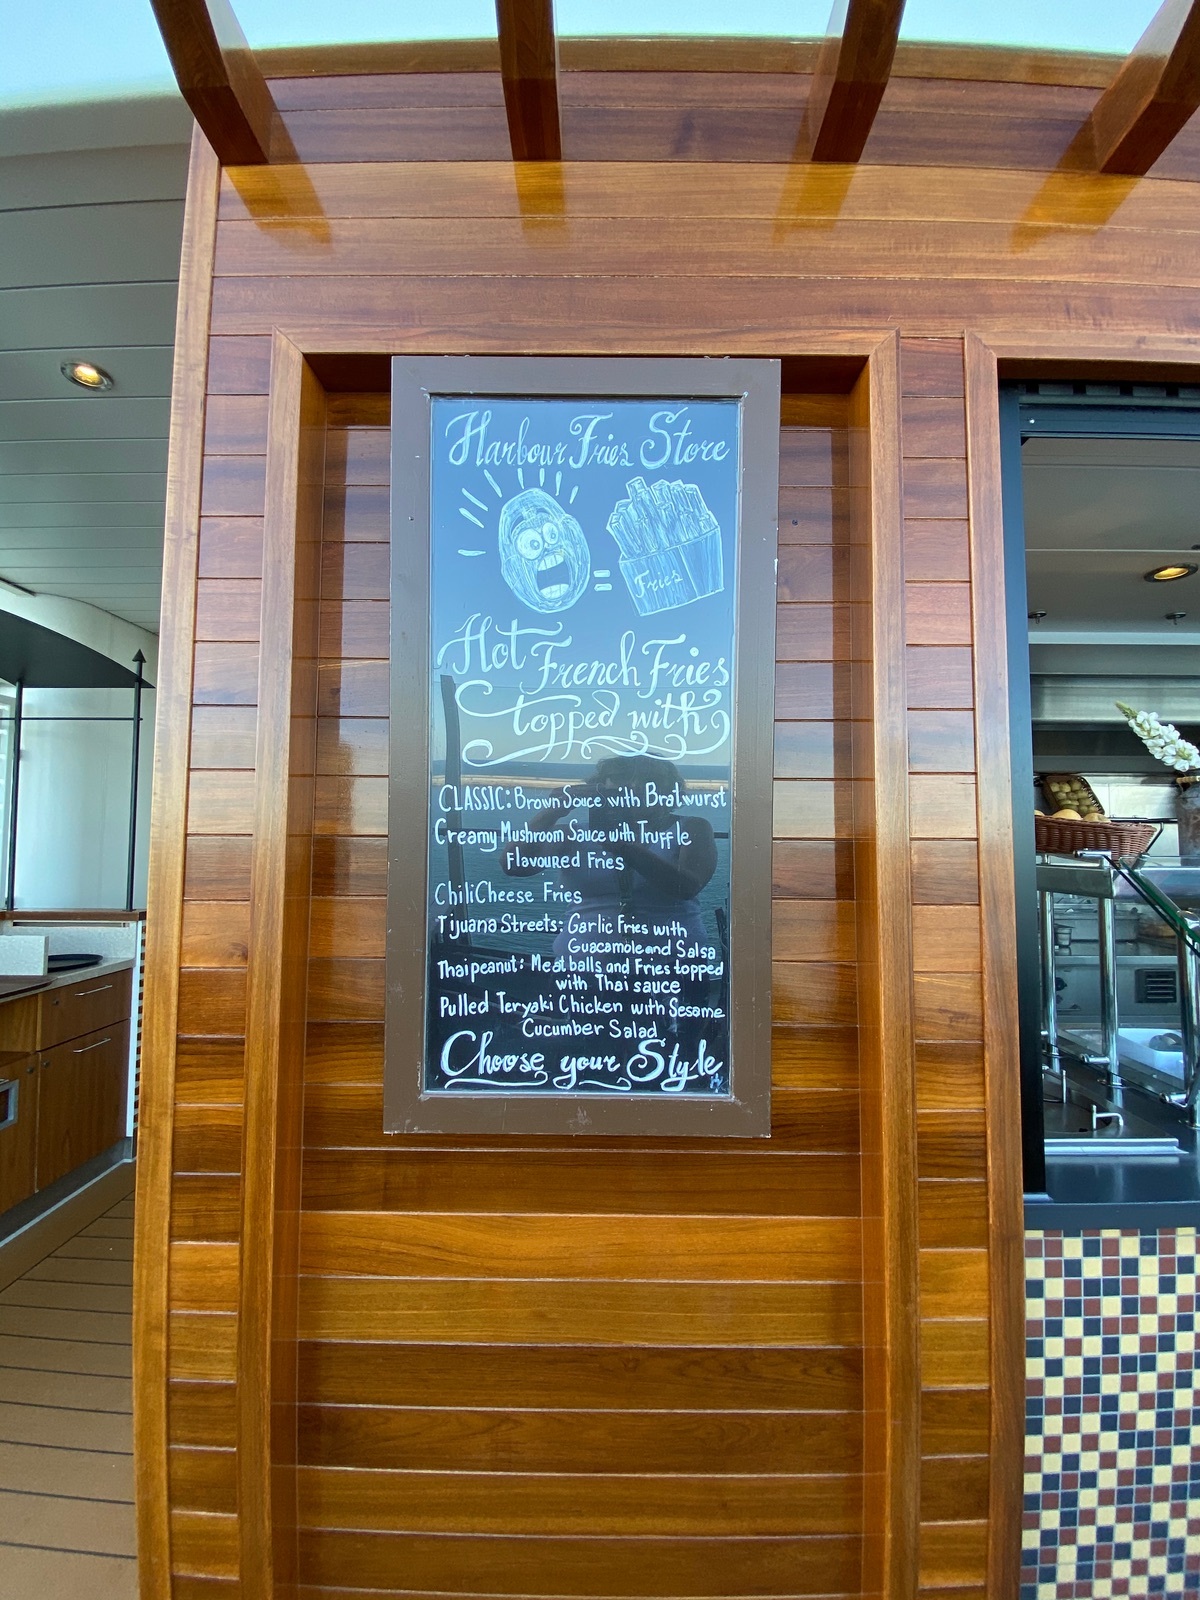 Harbour Fries Store
=
Fries
Hot French Fries
topped with
CLASSIC: Brown Souce with Bratwurst
Creamy Mushroom Sauce with Truffle
Flavoured Fries
Chili Cheese Fries
Tijuana Streets: Garlic Fries with
Guacamole and Salsa
Thai peanut: Meatballs and Fries topped
with Thai sauce
Pulled Teryaki Chicken with Sesame
Cucumber Salad
Choose your Style